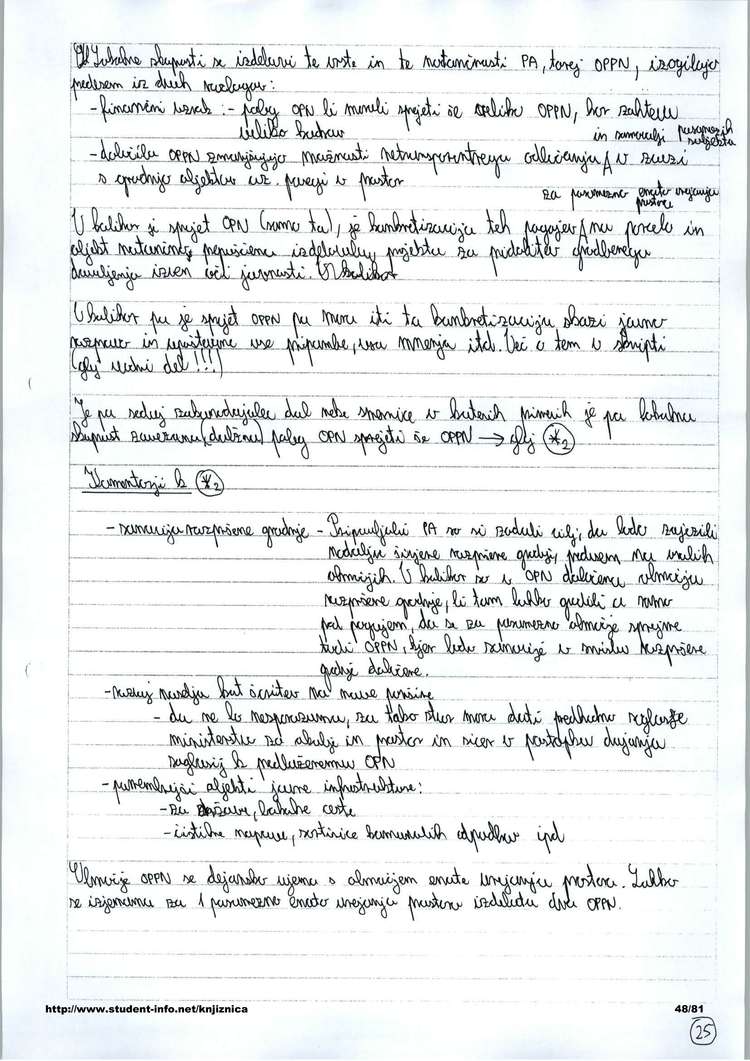 Lokalne skupnosti se izdelavi te vrste in te natančnosti PA, torej OPPN, izogibajo
predvsem iz dveh razlogov:
- finančni vzrok : - poleg OPN bi morali sprejeti še veliko OPPN, kar zahteva
veliko denarja
- določila OPPN zmanjšujejo možnosti netransparentnega odločanja in samovolji posameznih subjektov v zvezi
z gradnjo objektov oz. posegi v prostor
V kolikor je sprejet OPN (samo ta), je konkretizacija teh pogojev za posamezno enoto urejanja prostora na parcelo in
objekt natančno prepuščena izdelovalcu projekta za pridobitev gradbenega
dovoljenja izven oči javnosti.
V kolikor pa je sprejet OPPN pa mora iti ta konkretizacija skozi javno
razpravo in upoštevane vse pripombe, vsa mnenja itd. Več o tem v skripti
(glej vodni del !!!)
Je pa sedaj zakonodajalec dal neke smernice v katerih primerih je pa lokalna
skupnost zavezana (dolžna) poleg OPN sprejeti še OPPN → glej *2
Komentarji k *2
- sanacija razpršene gradnje - Pripravljalci PA so si zadali cilj, da bodo zajezili
nadaljnje širjenje razpršene gradnje, predvsem na vseh
območjih. V kolikor so v OPN določena območja
razpršene gradnje, bi tam lahko gradili a samo
pod pogojem, da se za posamezno območje sprejme
tudi OPPN, kjer bodo sanacije v smislu razpršene
gradnje določene.
- razvoj naselja kot širitev na nove površine
- da ne bo nesporazuma, za tako stvar mora dati predhodno soglasje
ministrstvo za okolje in prostor in sicer v postopku dajanja
soglasij k predloženemu OPN
- pomembnejši objekti javne infrastrukture:
- za državne, lokalne ceste
- čistilne naprave, sortirnice komunalnih odpadkov ipd
Območje OPPN se dejansko ujema z območjem enote urejanja prostora. Lahko
se izjemoma za 1 posamezno enoto urejanja prostora izdelata dva OPPN.
http://www.student-info.net/knjiznica
48/81
25